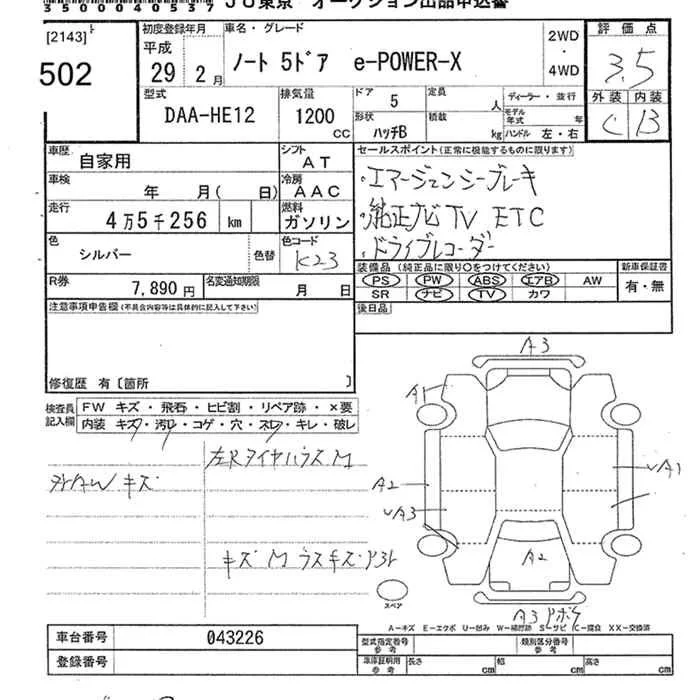 35000040537 JU東京 オークション出品申込書
[2143]
502
初度登録年月
平成
29年 2月
車名・グレード
ノート 5ドア e-POWER-X
2WD
・
4WD
評価点
3.5
外装 内装
C B
型式
DAA-HE12
排気量
1200 CC
ドア 5
形状 ハッチB
定員 人
積載 kg
ディーラー・並行
モデル年式 年
ハンドル 左・右
車歴 自家用
シフト AT
車検 年 月( 日)
冷房 AAC
走行 4万5千256 km
燃料 ガソリン
色 シルバー 色替
色コード K23
R券 7,890円
名変通知期限 月 日
セールスポイント(正常に機能するものに限ります)
・エマージェンシーブレーキ
・純正ナビ TV ETC
・ドライブレコーダー
装備品(純正品に限り○をつけてください)
PS PW ABS エアB AW
SR ナビ TV カワ
新車保証書
有・無
後日品
注意事項申告欄(不具合内容等は具体的に記入して下さい)
修復歴 有〔箇所 〕
検査員記入欄
FW キズ・飛石・ヒビ割・リペア跡・×要
内装 キズ・汚レ・コゲ・穴・スレ・キレ・破レ
左Rタイヤハウス M
AW キズ
キズ M
A3
A1
A2
A3
A1
A2
A3
スペア
A-キズ E-エクボ U-凹み W-補修跡 S-サビ C-腐食 XX-交換済
車台番号 043226
登録番号
型式指定番号 参考
類別区分番号 参考
車庫証明用 参考
長さ cm 幅 cm 高さ cm